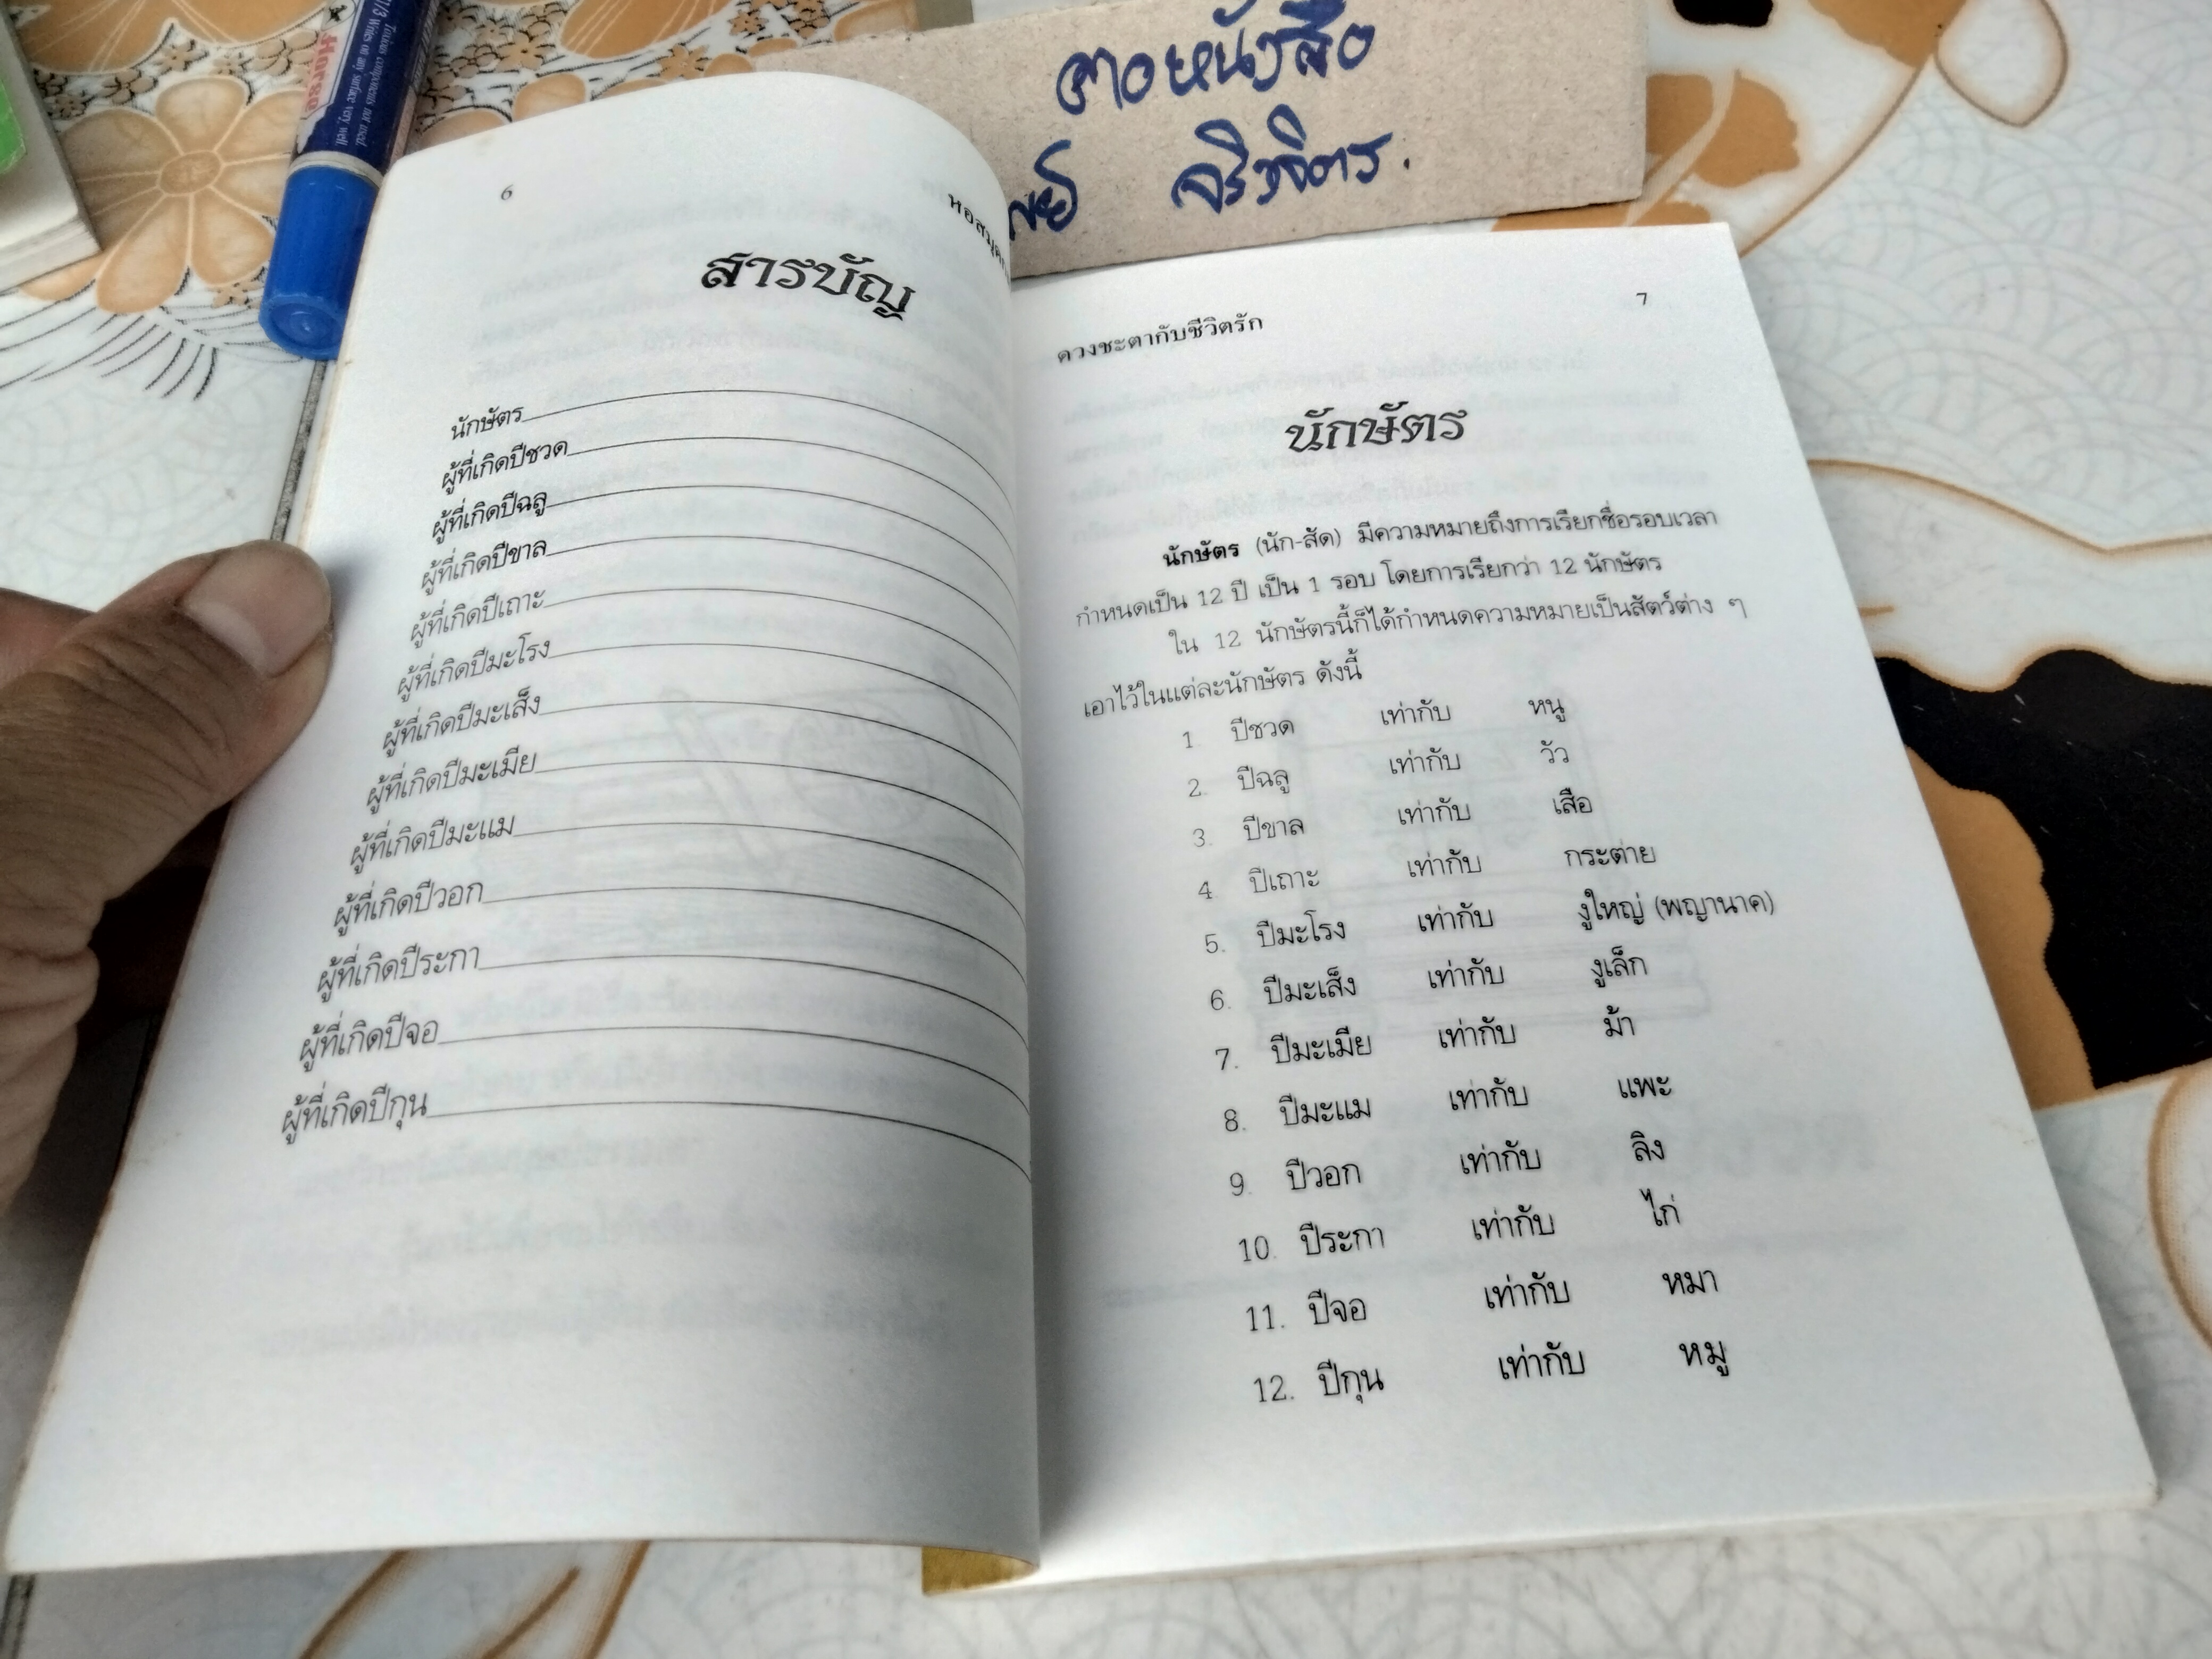 Horse
1/3 Writes on any surface very well.
Toxious components not used
คอหนังสือ
จริวจิตร.
6
สารบัญ
นักษัตร
ผู้ที่เกิดปีชวด
ผู้ที่เกิดปีฉลู
ผู้ที่เกิดปีขาล
ผู้ที่เกิดปีเถาะ
ผู้ที่เกิดปีมะโรง
ผู้ที่เกิดปีมะเส็ง
ผู้ที่เกิดปีมะเมีย
ผู้ที่เกิดปีมะแม
ผู้ที่เกิดปีวอก
ผู้ที่เกิดปีระกา
ผู้ที่เกิดปีจอ
ผู้ที่เกิดปีกุน
ดวงชะตากับชีวิตรัก 7
นักษัตร
นักษัตร (นัก-สัด) มีความหมายถึงการเรียกชื่อรอบเวลา
กำหนดเป็น 12 ปี เป็น 1 รอบ โดยการเรียกว่า 12 นักษัตร
ใน 12 นักษัตรนี้ก็ได้กำหนดความหมายเป็นสัตว์ต่าง ๆ
เอาไว้ในแต่ละนักษัตร ดังนี้
1. ปีชวด เท่ากับ หนู
2. ปีฉลู เท่ากับ วัว
3. ปีขาล เท่ากับ เสือ
4 ปีเถาะ เท่ากับ กระต่าย
5. ปีมะโรง เท่ากับ งูใหญ่ (พญานาค)
6. ปีมะเส็ง เท่ากับ งูเล็ก
7. ปีมะเมีย เท่ากับ ม้า
8. ปีมะแม เท่ากับ แพะ
9. ปีวอก เท่ากับ ลิง
10. ปีระกา เท่ากับ ไก่
11. ปีจอ เท่ากับ หมา
12. ปีกุน เท่ากับ หมู